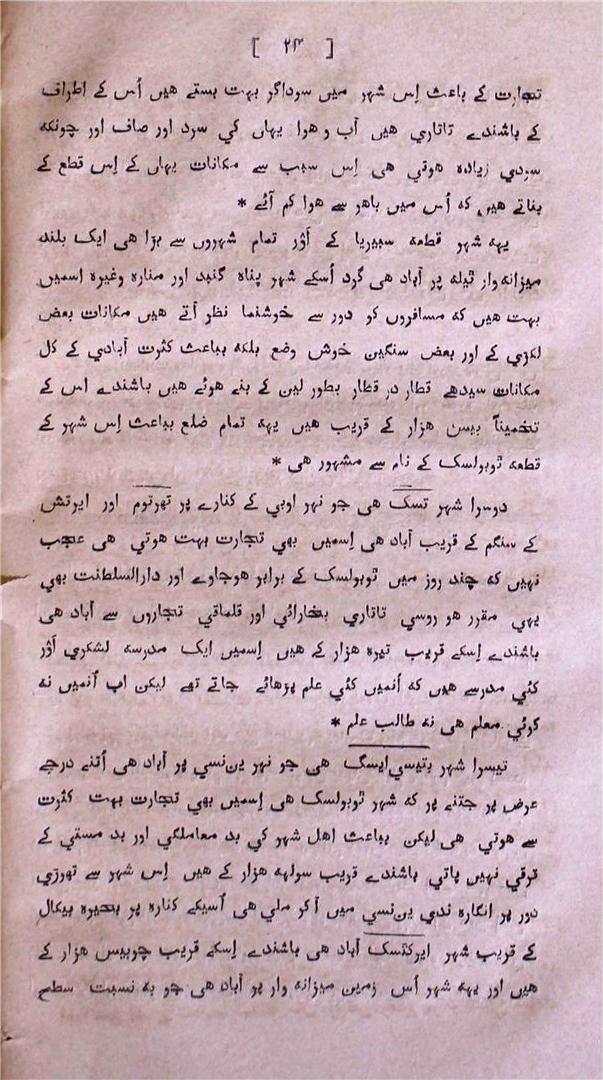 [ ۲۴ ]
تجارت کے باعث اِس شہر میں سوداگر بہت بستے ھیں اُس کے اطراف
کے باشندے تاتاری ھیں آب و ھوا یہاں کي سرد اور صاف اور چونکہ
سردي زیادہ ھوتي ھی اِس سبب سے مکانات یہاں کے اِس قطع کے
بناتے ھیں کہ اُس میں باھر سے ھوا کم آئے *
یہہ شہر قطعہ سبیریا کے اَوْر تمام شہروں سے بڑا ھی ایک بلند
میزانہ‌وار ٹیلہ پر آباد ھی گرد اُسکے شہر پناہ گنبد اور منارہ وغیرہ اسمیں
بہت ھیں کہ مسافروں کو دور سے خوشنما نظر آتے ھیں مکانات بعض
لکڑي کے اور بعض سنگین خوش وضع بلکہ بباعث کثرت آبادي کے کل
مکانات سیدھے قطار در قطار بطور لین کے بنے ھوئے ھیں باشندے اس کے
تخمیناً بیس ھزار کے قریب ھیں یہہ تمام ضلع بباعث اِس شہر کے
قطعہ ٹوبولسک کے نام سے مشہور ھی *
دوسرا شہر تسک ھی جو نہر اوبي کے کنارے پر تھرتوم اور ایرتش
کے سنگم کے قریب آباد ھی اِسمیں بھي تجارت بہت ھوتي ھی عجب
نہیں کہ چند روز میں ٹوبولسک کے برابر ھوجاوے اور دارالسلطنت بھي
یہي مقرر ھو روسي تاتاري بخارائي اور قلماقي تجاروں سے آباد ھی
باشندے اِسکے قریب تیرہ ھزار کے ھیں اِسمیں ایک مدرسہ لشکري اَوْر
کئي مدرسے ھیں کہ اُنمیں کئي علم پڑھائے جاتے تھے لیکن اب اُنمیں نہ
کوئي معلم ھی نہ طالب علم *
تیسرا شہر یتیسي‌ایسگ ھی جو نہر ین‌نسي پر آباد ھی اُتنے درجے
عرض پر جتنے پر کہ شہر ٹوبولسک ھی اِسمیں بھي تجارت بہت کثرت
سے ھوتي ھی لیکن بباعث اھل شہر کي بد معاملگي اور بد مستي کے
ترقي نہیں پاتي باشندے قریب سولہہ ھزار کے ھیں اِس شہر سے تھوڑي
دور پر انگارہ ندي ین‌نسي میں آکر ملي ھی اُسیکے کنارہ پر بحیرہ بیکال
کے قریب شہر ایرکٹسک آباد ھی باشندے اِسکے قریب چوبیس ھزار کے
ھیں اور یہہ شہر اُس زمین میزانہ وار پو آباد ھی جو بہ نسبت سطح